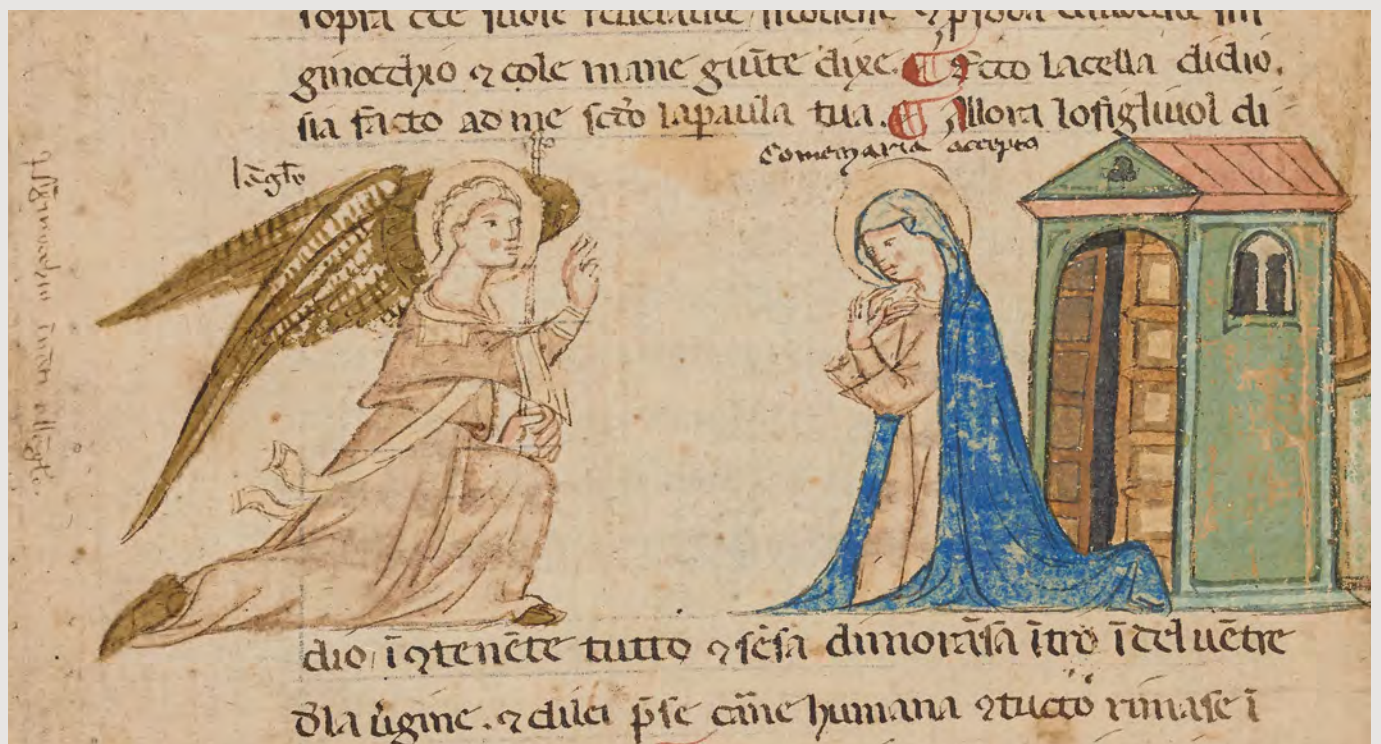 ginocchio ⁊ cole mane giūte dixe. ¶ Ecco lacella didio.
sia facto ad me scd̄o lapaula tua. ¶ Allora lofigliuol di
come maria accepto
dio ī ⁊tenēte tutto ⁊ sēsa dimorāsa ītro ī del uētre
d̄la ūgine. ⁊ dilei p̄se cāne humana ⁊tucto rimase ī